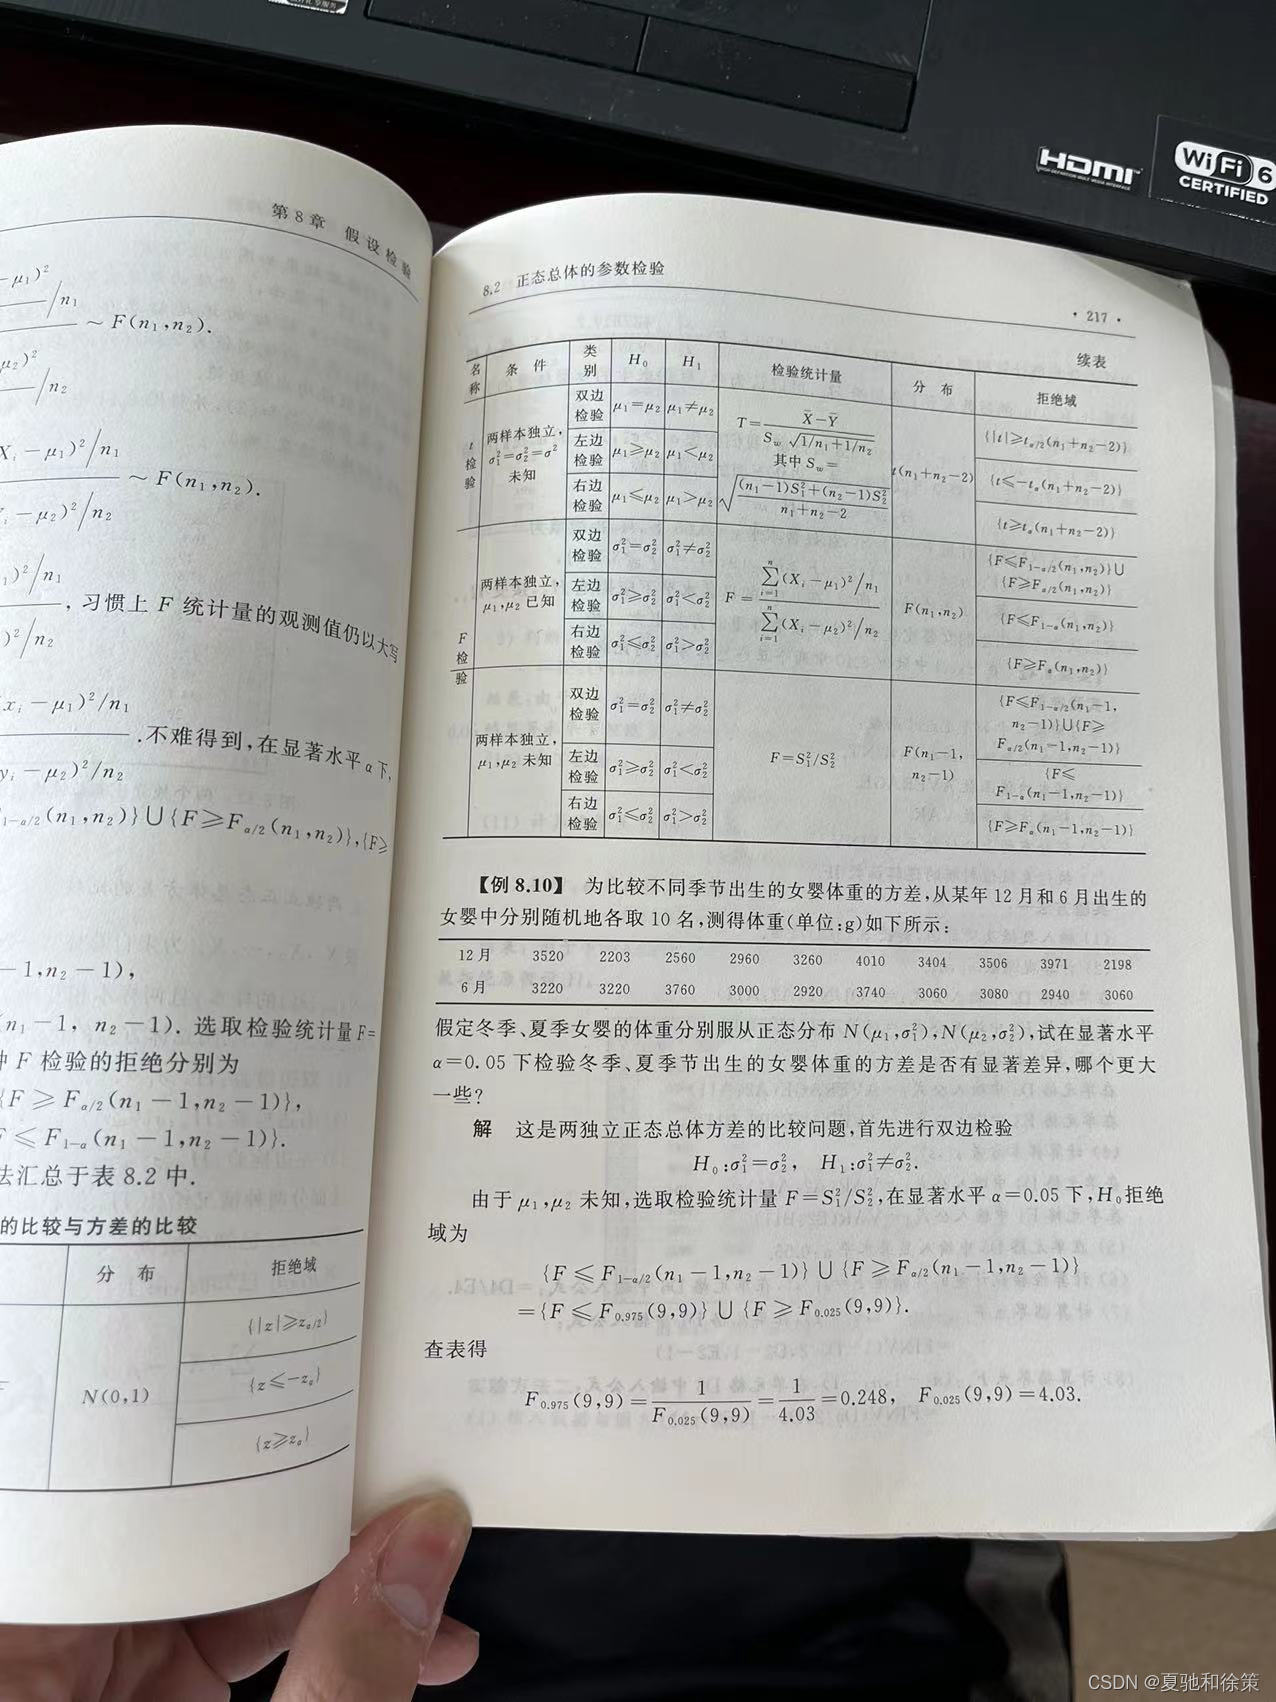 HDMI
HIGH-DEFINITION MULTIMEDIA INTERFACE
Wi Fi 6
CERTIFIED
第 8 章 假 设 检 验
−μ₁)²
/n₁
~ F(n₁,n₂).
μ₂)²
/n₂
X_i − μ₁)²/n₁
~ F(n₁,n₂).
_i − μ₂)²/n₂
)²/n₁
,习惯上 F 统计量的观测值仍以大写
)²/n₂
x_i − μ₁)²/n₁
.不难得到,在显著水平 α 下,
y_i − μ₂)²/n₂
1−α/2(n₁,n₂)}∪{F≥F_{α/2}(n₁,n₂)},{F≥
−1,n₂−1),
(n₁−1, n₂−1). 选取检验统计量 F=
F 检验的拒绝分别为
{F ≥ F_{α/2}(n₁−1,n₂−1)},
F ≤ F_{1−α}(n₁−1,n₂−1)}.
法汇总于表 8.2 中.
的比较与方差的比较
分 布 拒绝域
{|z|≥z_{α/2}}
N(0,1) {z≤−z_α}
{z≥z_α}
8.2 正态总体的参数检验
· 217 ·
续表
名称 条 件 类别 H₀ H₁ 检验统计量 分 布 拒绝域
t 检验 两样本独立, σ₁²=σ₂²=σ² 未知 双边检验 μ₁=μ₂ μ₁≠μ₂ T=(X̄−Ȳ)/(S_w √(1/n₁+1/n₂)) 其中 S_w= √(((n₁−1)S₁²+(n₂−1)S₂²)/(n₁+n₂−2)) t(n₁+n₂−2) {|t|≥t_{α/2}(n₁+n₂−2)}
左边检验 μ₁≥μ₂ μ₁<μ₂ {t≤−t_α(n₁+n₂−2)}
右边检验 μ₁≤μ₂ μ₁>μ₂ {t≥t_α(n₁+n₂−2)}
F 检验 两样本独立, μ₁,μ₂ 已知 双边检验 σ₁²=σ₂² σ₁²≠σ₂² F = (∑_{i=1}^{n}(X_i−μ₁)²/n₁)/(∑_{i=1}^{n}(X_i−μ₂)²/n₂) F(n₁,n₂) {F≤F_{1−α/2}(n₁,n₂)}∪{F≥F_{α/2}(n₁,n₂)}
左边检验 σ₁²≥σ₂² σ₁²<σ₂² {F≤F_{1−α}(n₁,n₂)}
右边检验 σ₁²≤σ₂² σ₁²>σ₂² {F≥F_α(n₁,n₂)}
两样本独立, μ₁,μ₂ 未知 双边检验 σ₁²=σ₂² σ₁²≠σ₂² F=S₁²/S₂² F(n₁−1,n₂−1) {F≤F_{1−α/2}(n₁−1,n₂−1)}∪{F≥F_{α/2}(n₁−1,n₂−1)}
左边检验 σ₁²≥σ₂² σ₁²<σ₂² {F≤F_{1−α}(n₁−1,n₂−1)}
右边检验 σ₁²≤σ₂² σ₁²>σ₂² {F≥F_α(n₁−1,n₂−1)}
【例 8.10】 为比较不同季节出生的女婴体重的方差,从某年 12 月和 6 月出生的
女婴中分别随机地各取 10 名,测得体重(单位:g)如下所示:
12 月 3520 2203 2560 2960 3260 4010 3404 3506 3971 2198
6 月 3220 3220 3760 3000 2920 3740 3060 3080 2940 3060
假定冬季、夏季女婴的体重分别服从正态分布 N(μ₁,σ₁²),N(μ₂,σ₂²),试在显著水平
α=0.05 下检验冬季、夏季节出生的女婴体重的方差是否有显著差异,哪个更大
一些?
解 这是两独立正态总体方差的比较问题,首先进行双边检验
H₀:σ₁²=σ₂², H₁:σ₁²≠σ₂².
由于 μ₁,μ₂ 未知,选取检验统计量 F=S₁²/S₂²,在显著水平 α=0.05 下,H₀拒绝
域为
{F ≤ F_{1−α/2}(n₁−1,n₂−1)} ∪ {F ≥ F_{α/2}(n₁−1,n₂−1)}
={F ≤ F_{0.975}(9,9)} ∪ {F ≥ F_{0.025}(9,9)}.
查表得
F_{0.975}(9,9)=1/F_{0.025}(9,9)=1/4.03=0.248, F_{0.025}(9,9)=4.03.
CSDN @夏驰和徐策